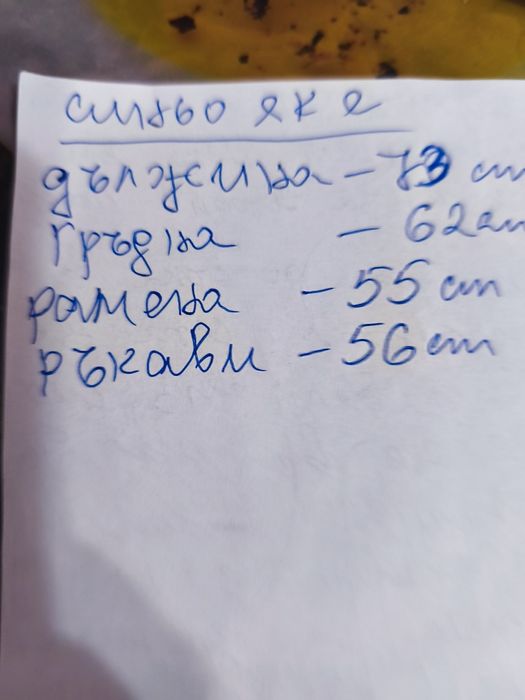 синьо яке
дължина - 73 cm
Гръдна - 62 cm
рамена - 55 cm
ръкави - 56 cm